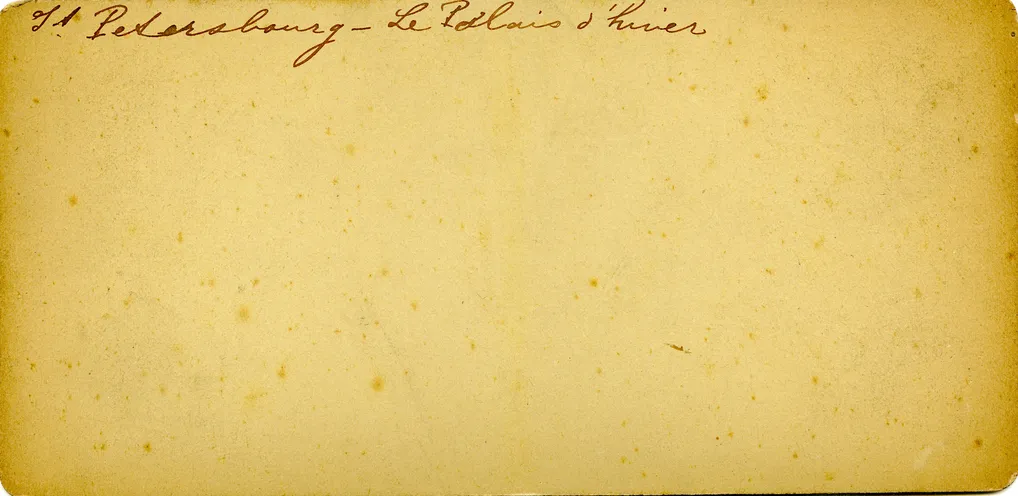 St Petersbourg - Le Palais d'hiver